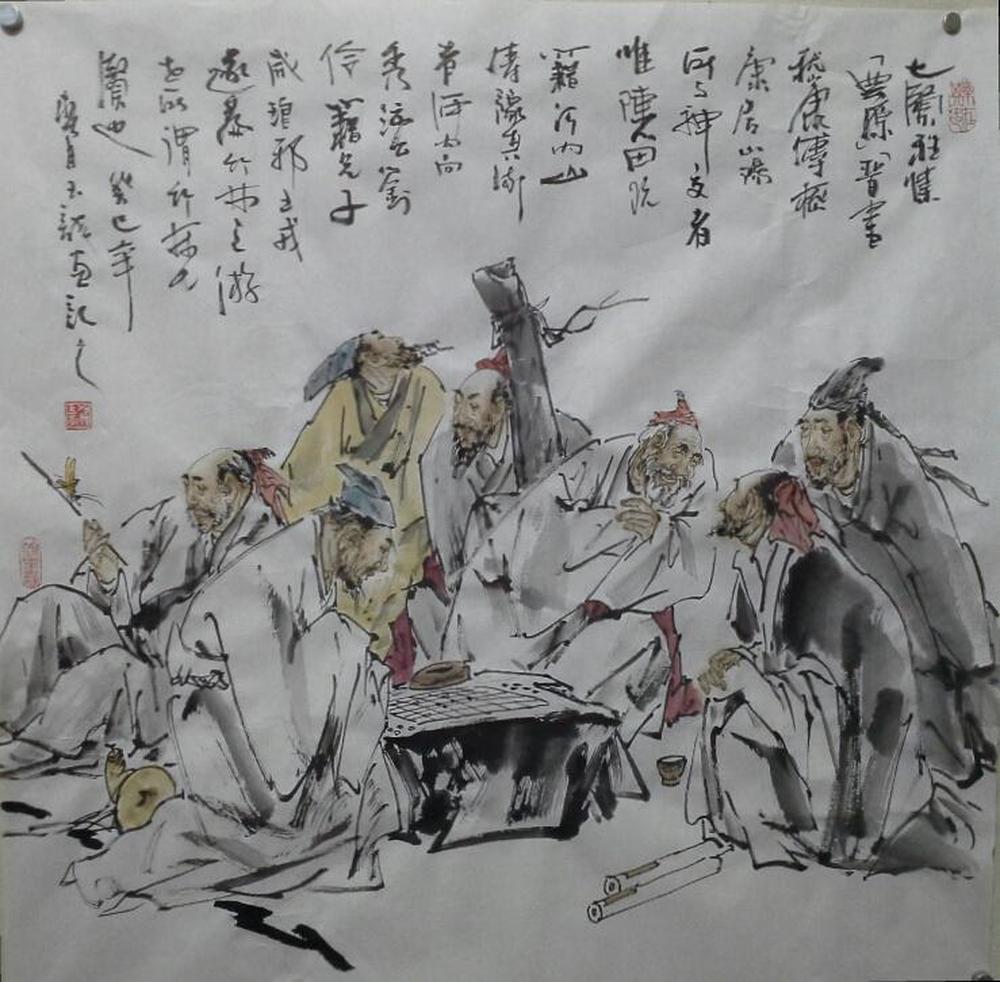 七賢雅集
「典源」「晉書
嵇康傳嵇
康居山陽
所与神交者
唯陳留阮
籍河內山
濤豫其流
者河內向
秀沛国劉
伶籍兄子
咸琅邪王戎
遂為竹林之游
世所謂竹林七
賢也 癸巳年
月玉 画記之